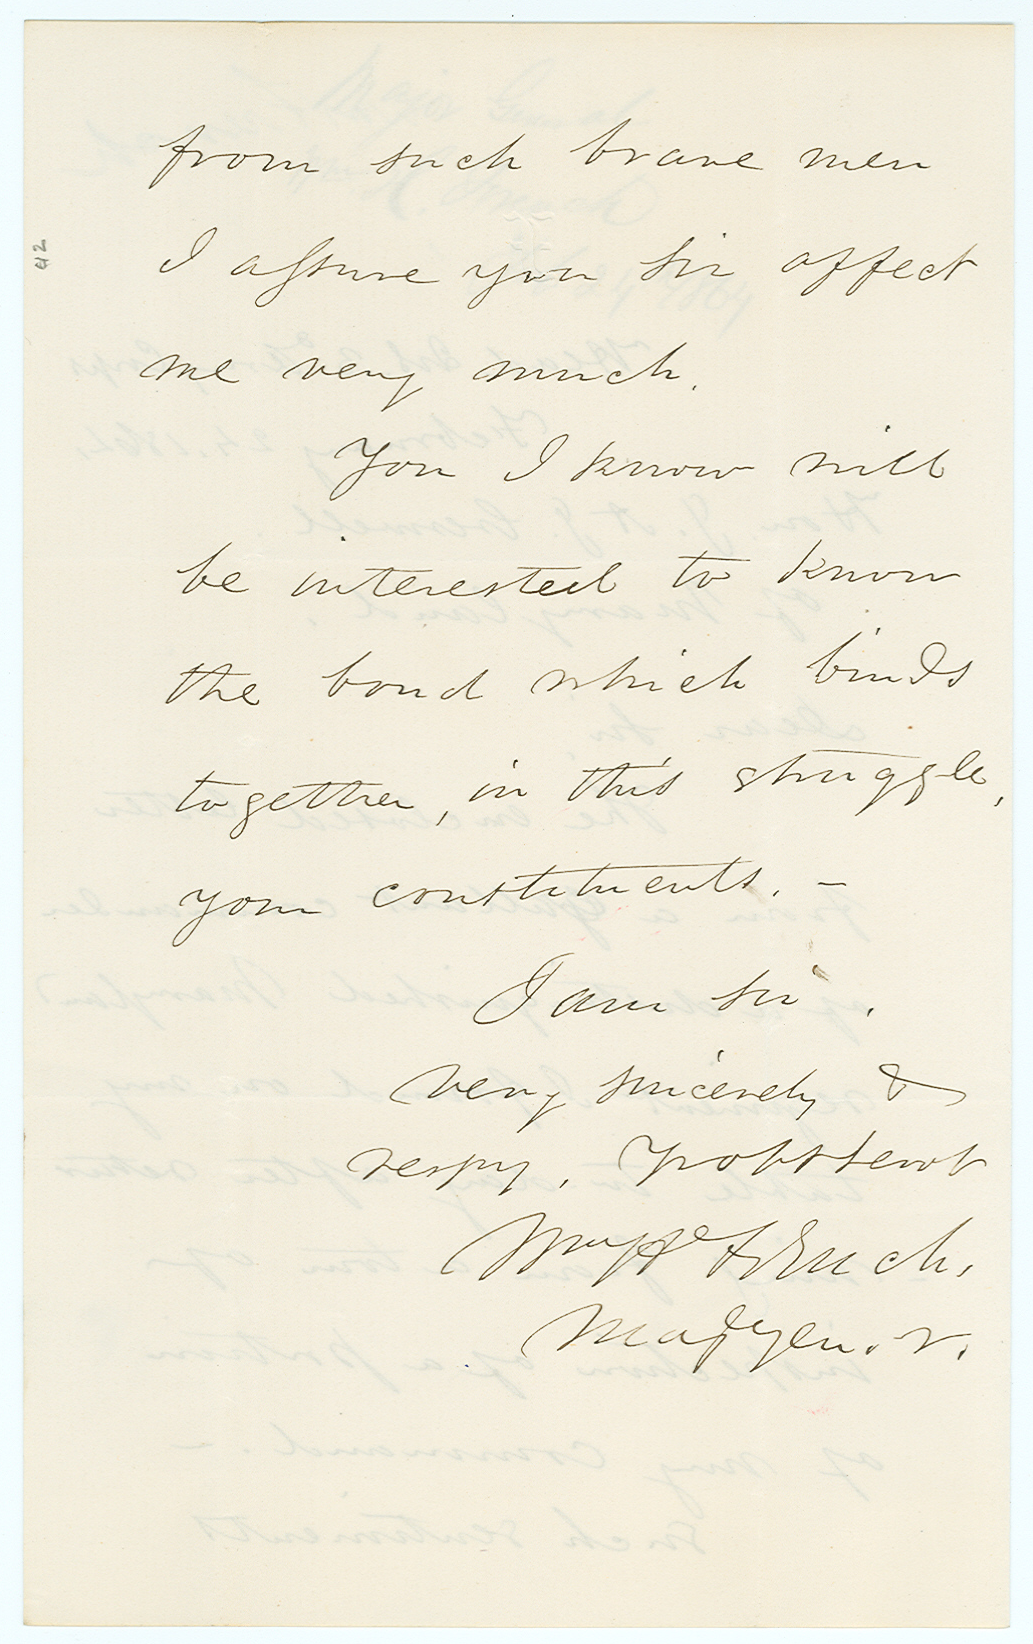 from such brave men
I assure you sir affect
me very much.
You I know will
be interested to know
the bond which binds
together, in this struggle,
your constituents. -
I am sir,
very sincerely &
respy, Yr obt servt
Wm H French,
Maj Gen. V.
42